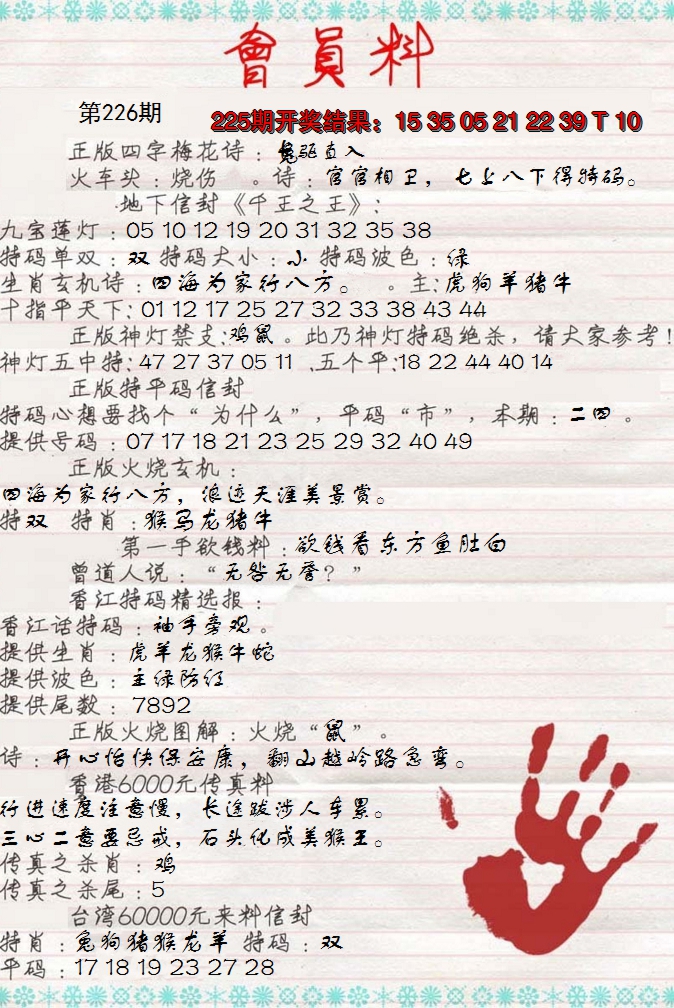 會員料
第226期
225期开奖结果：15 35 05 21 22 39 T 10
正版四字梅花诗：兔驱直入
火车头：烧伤 。诗：官官相卫，七上八下得特码。
地下信封《千王之王》：
九宝莲灯：05 10 12 19 20 31 32 35 38
特码单双：双 特码大小：小 特码波色：绿
生肖玄机诗：四海为家行八方。 。主：虎狗羊猪牛
十指平天下：01 12 17 25 27 32 33 38 43 44
正版神灯禁支：鸡鼠。此乃神灯特码绝杀，请大家参考！
神灯五中特：47 27 37 05 11 .五个平：18 22 44 40 14
正版特平码信封
特码心想要找个“为什么”，平码“市”，本期：二四。
提供号码：07 17 18 21 23 25 29 32 40 49
正版火烧玄机：
四海为家行八方，浪迹天涯美景赏。
特双 特肖：猴马龙猪牛
第一手欲钱料：欲钱看东方鱼肚白
曾道人说：“无咎无誉？”
香江特码精选报：
香江话特码：袖手旁观。
提供生肖：虎羊龙猴牛蛇
提供波色：主绿防红
提供尾数：7892
正版火烧图解：火烧“鼠”。
诗：开心怡快保安康，翻山越岭路急弯。
香港6000元传真料
行进速度注意慢，长途跋涉人车累。
三心二意要忌戒，石头化成美猴王。
传真之杀肖：鸡
传真之杀尾：5
台湾60000元来料信封
特肖：兔狗猪猴龙羊 特码：双
平码：17 18 19 23 27 28